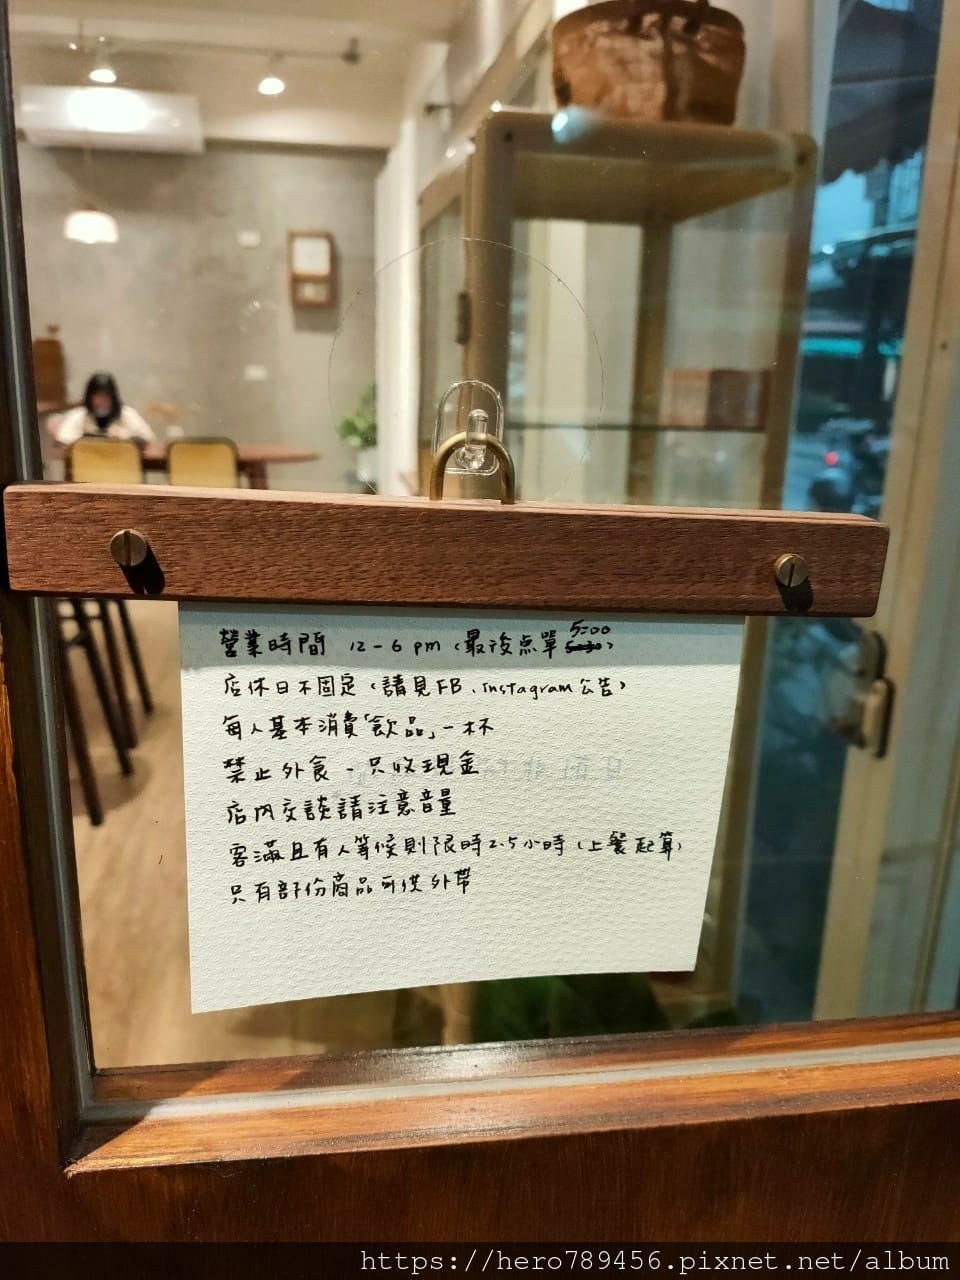 營業時間 12-6 pm (最後点單 5:00)
店休日不固定(請見FB、instagram公告)
每人基本消費「飲品」一杯
禁止外食 - 只收現金
店內交談請注意音量
客滿且有人等候則限時2.5小時(上餐起算)
只有部份商品可供外帶
https://hero789456.pixnet.net/album